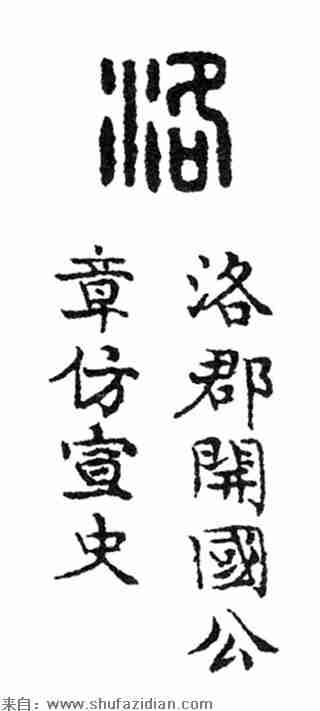 洛
洛郡開國公
章仿宣史
来自：www.shufazidian.com